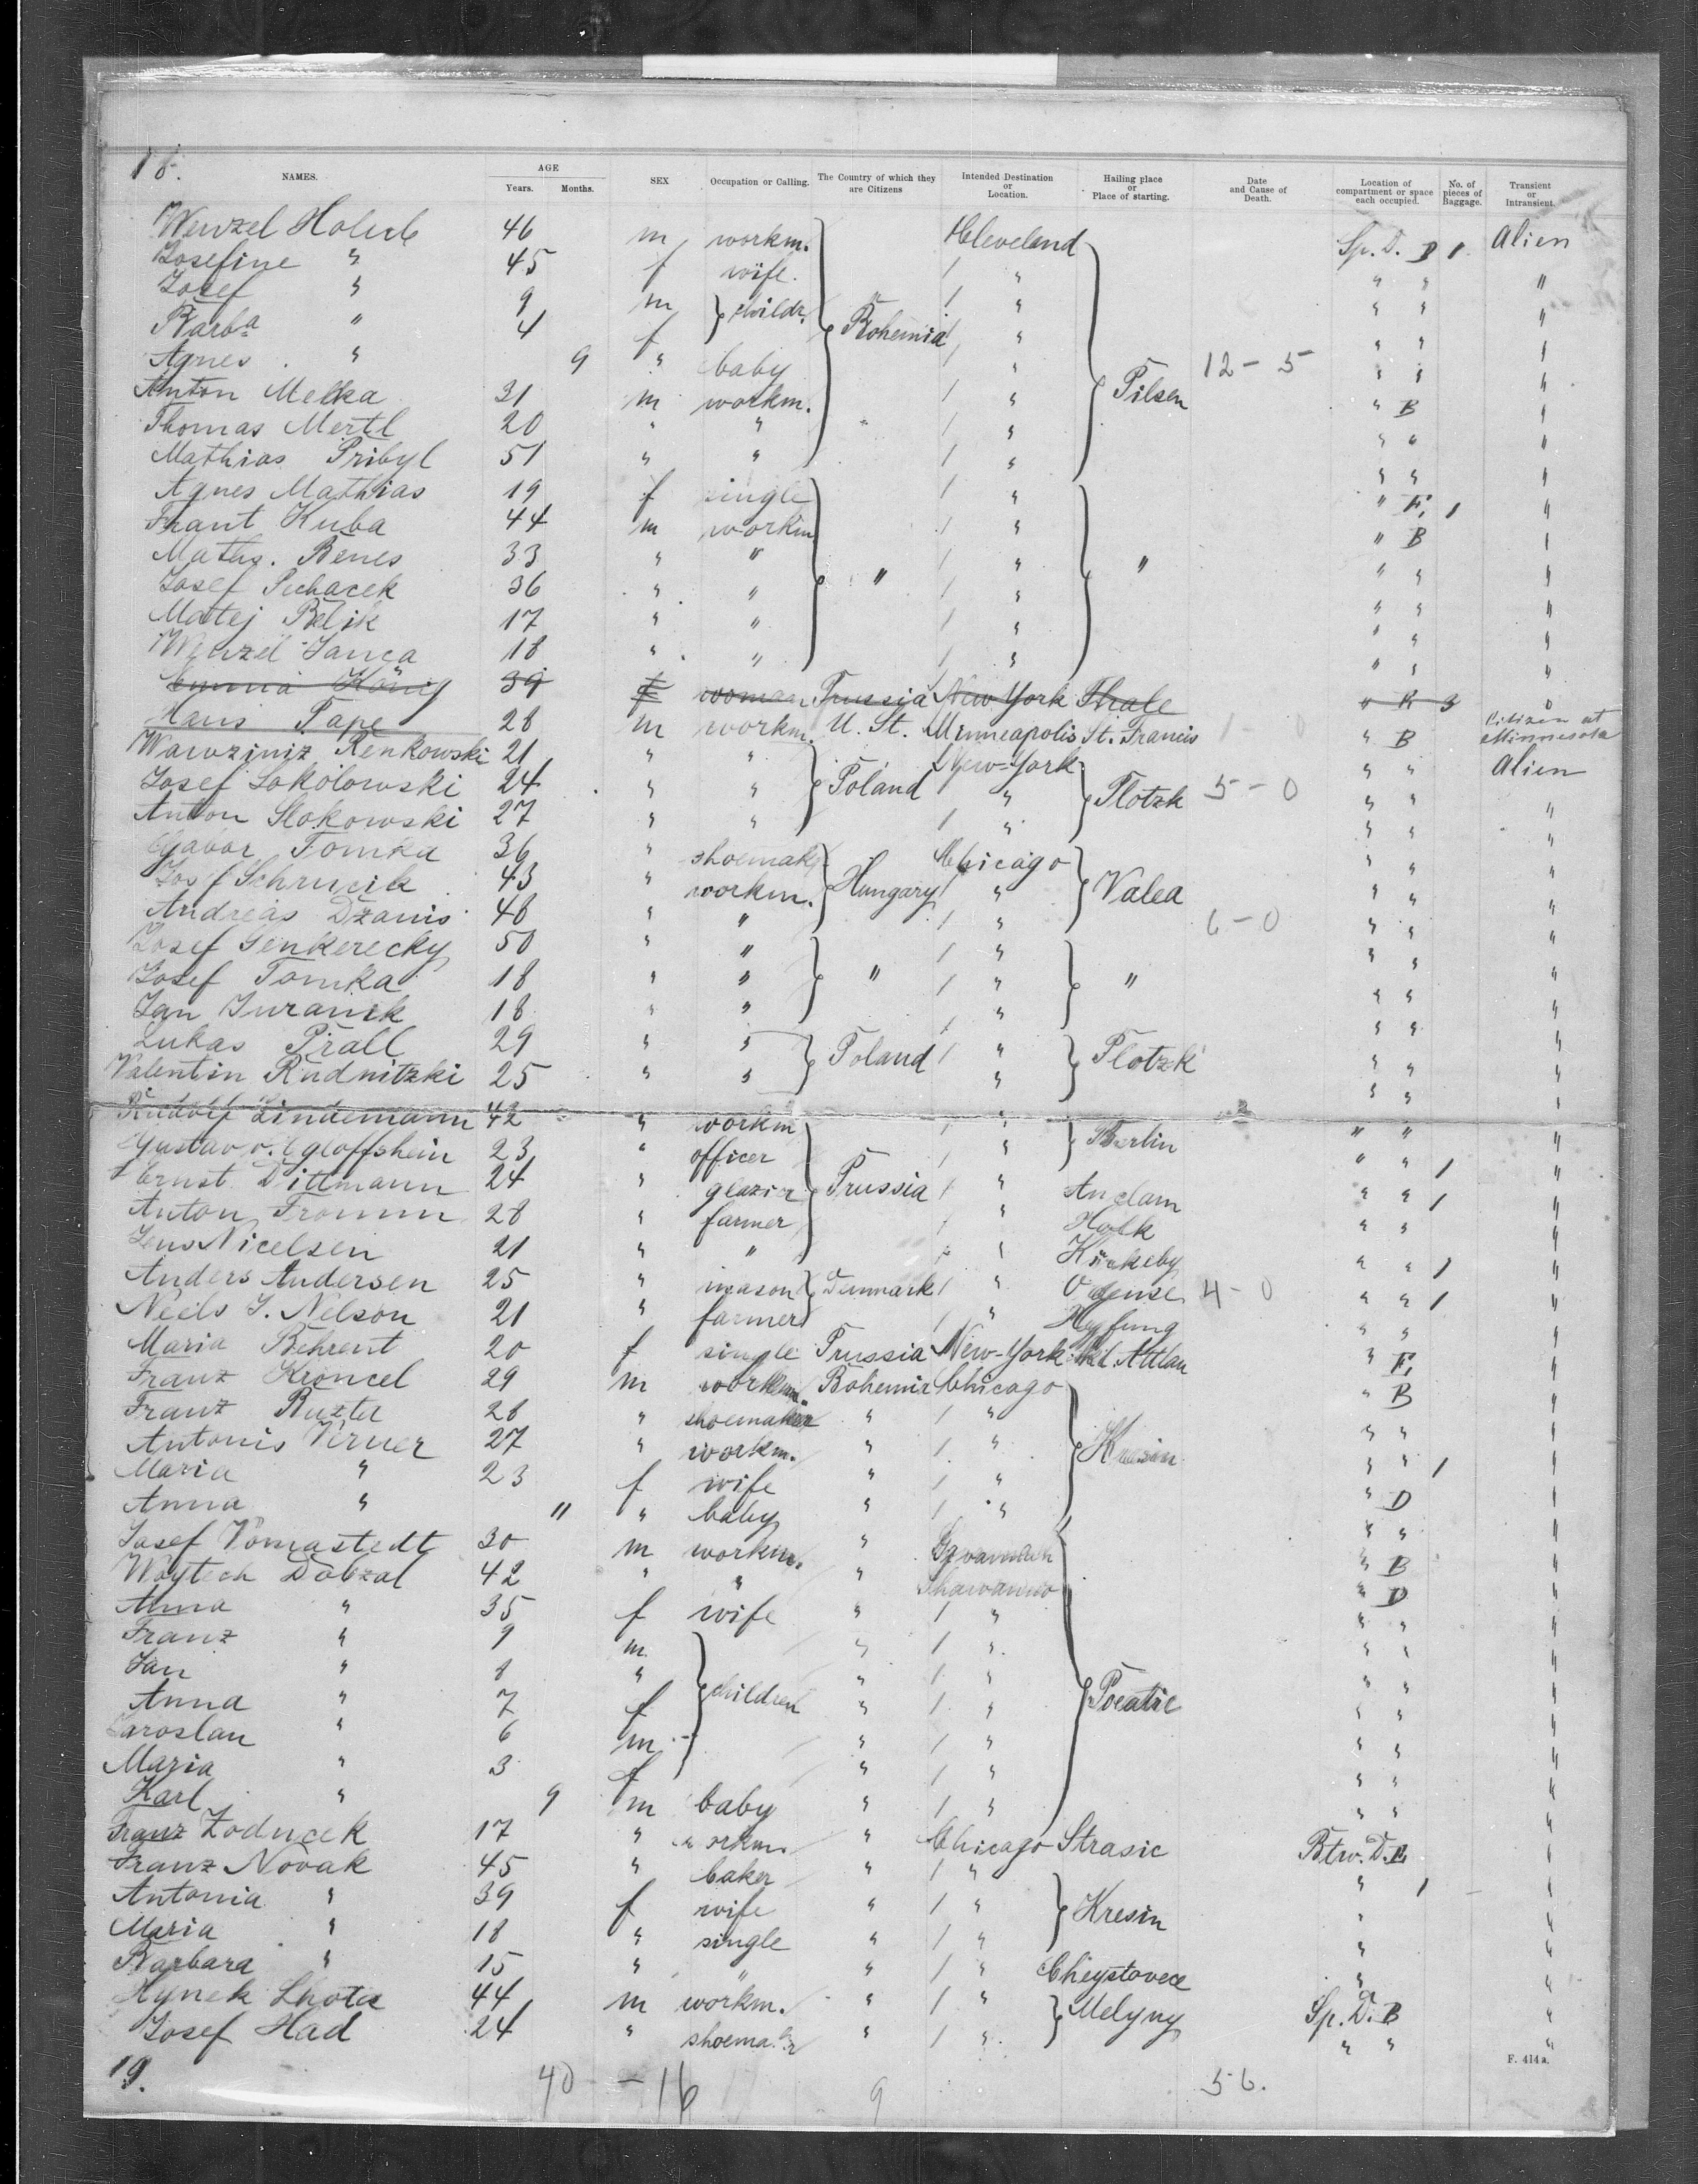 18.
NAMES. AGE Years. Months. SEX Occupation or Calling. The Country of which they are Citizens Intended Destination or Location. Hailing place or Place of starting. Date and Cause of Death. Location of compartment or space each occupied. No. of pieces of Baggage. Transient or Intransient.
Wenzel Holub 46 m workm. Cleveland Sp. D. B 1 Alien
Josefine " 45 f wife. / " " " "
Josef " 9 m childr. / " " " "
Barba " 4 f Bohemia / " " " "
Agnes " 9 " baby / " 12 - 5 " " "
Anton Melka 31 m workm. / " Pilsen " B "
Thomas Mertl 20 " " / " " " "
Mathias Pribyl 51 " " / " " " "
Agnes Mathias 19 f single / " " F. 1 "
Frant Kuba 44 m workm / " " B "
Maths. Benes 33 " " " / " " " " "
Josef Puchacek 36 " " / " " " "
Matej Belik 17 " " / " " " "
Wenzel Janca 18 " " / " " " "
Emma König 39 f woman Prussia New York Thale " B 3 "
Hans Pape 28 m workm. U. St. Minneapolis St. Francis 1 - 0 " B Citizen at Minnesota
Wawziniz Renkowski 21 " " New-York " " Alien
Josef Sokolowski 24 " " Poland " Plotzk 5 - 0 " " "
Anton Slokowski 27 " " / " " " "
Gavor Tomka 36 " shoemak. Chicago " " "
Josef Schrucik 43 " workm. Hungary / " Valea " " "
Andreas Dzanis 48 " " / " 6 - 0 " " "
Josef Senkerecky 50 " " / " " " "
Josef Tomka 18 " " " / " " " " "
Jan Juranik 18 " " / " " " "
Lukas Prall 29 " " Poland / " Plotzk " " "
Valentin Rudnitzki 25 " " " " " "
Rudolf Lindemann 42 " workm / " Berlin " " "
Gustav v. Egloffshein 23 " officer / " " " 1 "
Ernst Dittmann 24 " glazier Prussia / " Anclam " " 1 "
Anton Fromm 28 " farmer / " " " "
Jens Nicelsen 21 " " " " " 1 "
Anders Andersen 25 " mason Denmark / " Odense 4 - 0 " " 1 "
Neels J. Nelson 21 " farmer / " " " "
Maria Behrent 20 f single Prussia New-York " F. "
Franz Kroncel 29 m workm Bohemia Chicago " B "
Franz Ruzter 28 " shoemaker " / " " " "
Antonis Virner 27 " workm. " / " " " 1 "
Maria " 23 f wife " / " " D "
Anna " " " baby " / " " " "
Josef Vomastedt 30 m workm. " " B "
Woytech Dolezal 42 " " " " D "
Anna " 35 f wife " / " " " "
Franz " 9 m " / " " " "
Jan " 8 " " / " " " "
Anna " 7 f children " / " " " "
Jaroslau " 6 m " / " " " "
Maria " 3 f " / " " " "
Karl " 9 m baby " / " " " "
Franz Zoducek 17 " workm. " Chicago Strasic Btw. D. B "
Franz Novak 45 " baker " / " " 1 "
Antonia " 39 f wife " / " Kresin " "
Maria " 18 " single " / " " "
Barbara " 15 " " " / " Cheystovece " "
Hynek Lhota 44 m workm. " / " Melyny Sp. D. B "
Josef Had 24 " shoemaker " / " " " "
19. 40 - 16 9 56.
F. 414 a.